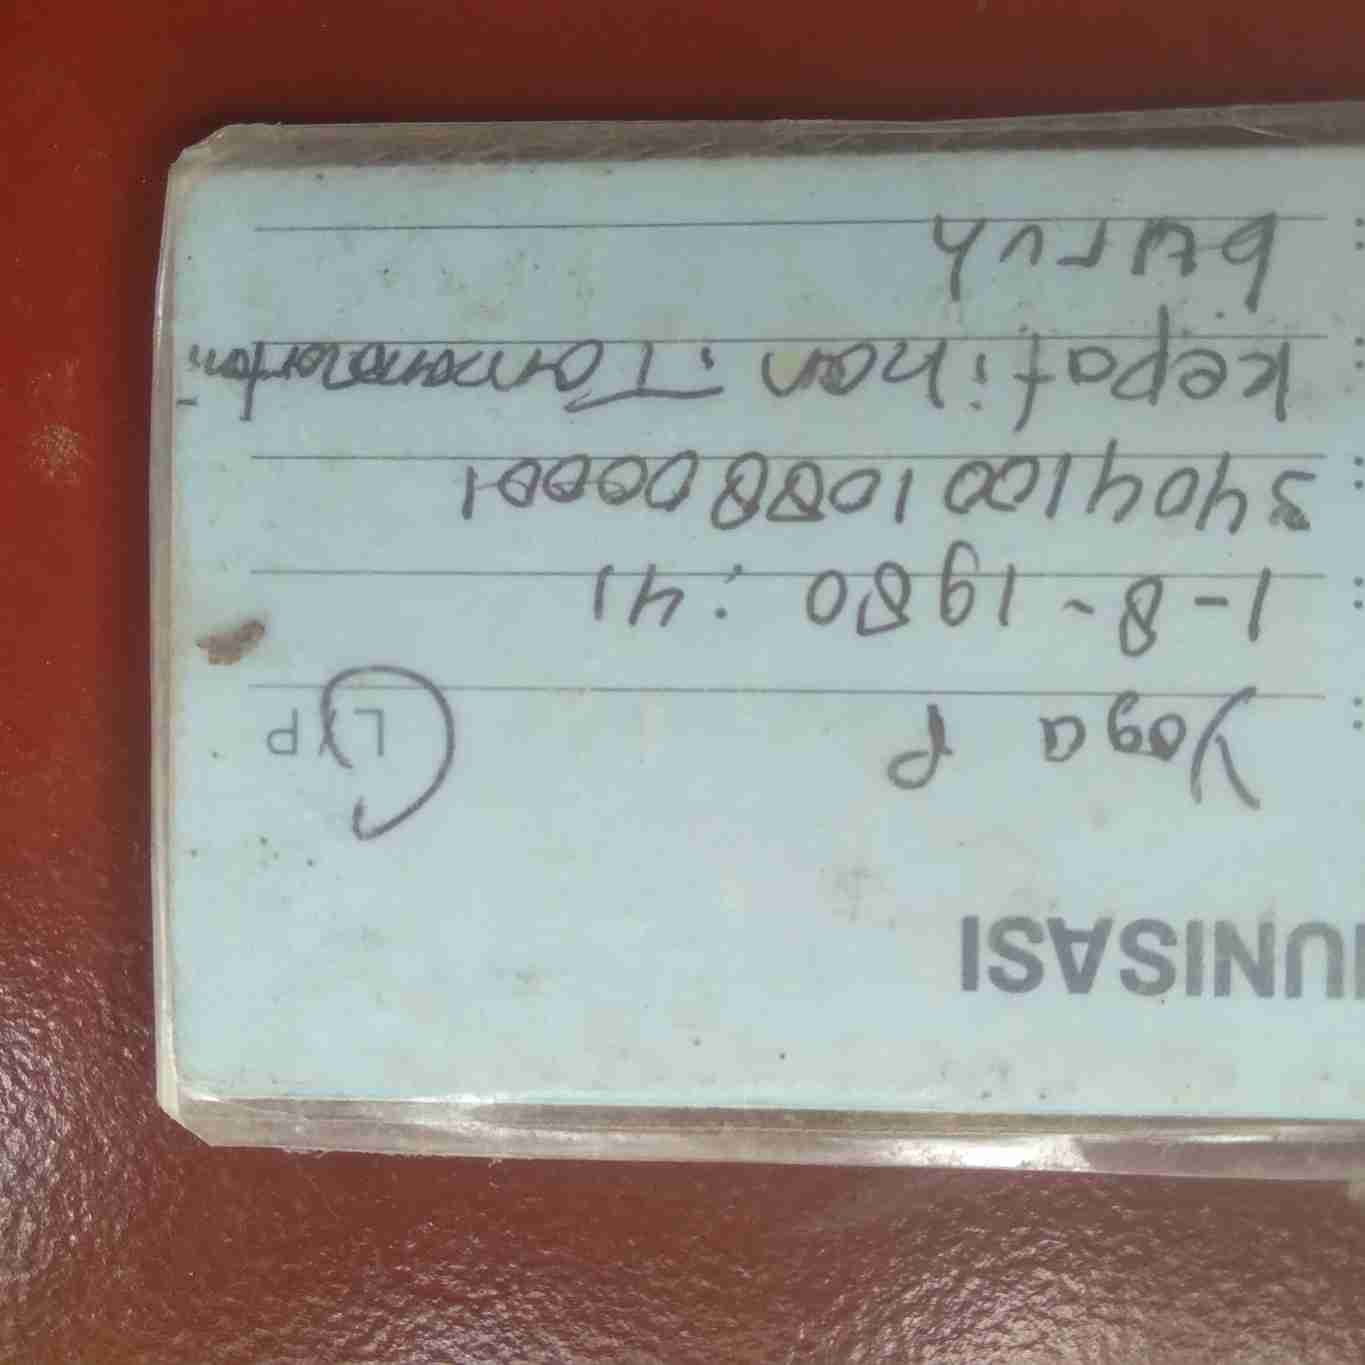 IUNISASI
Yoga P L/P
: 1-8-1980 : 41
: 3404100108800001
: kepatihan : Tamanmartani
: buruh